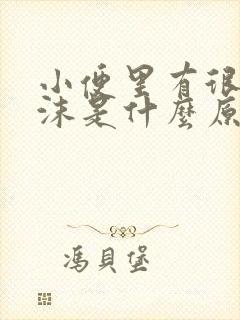 小便里有很
沫是什麼原
馮貝堡